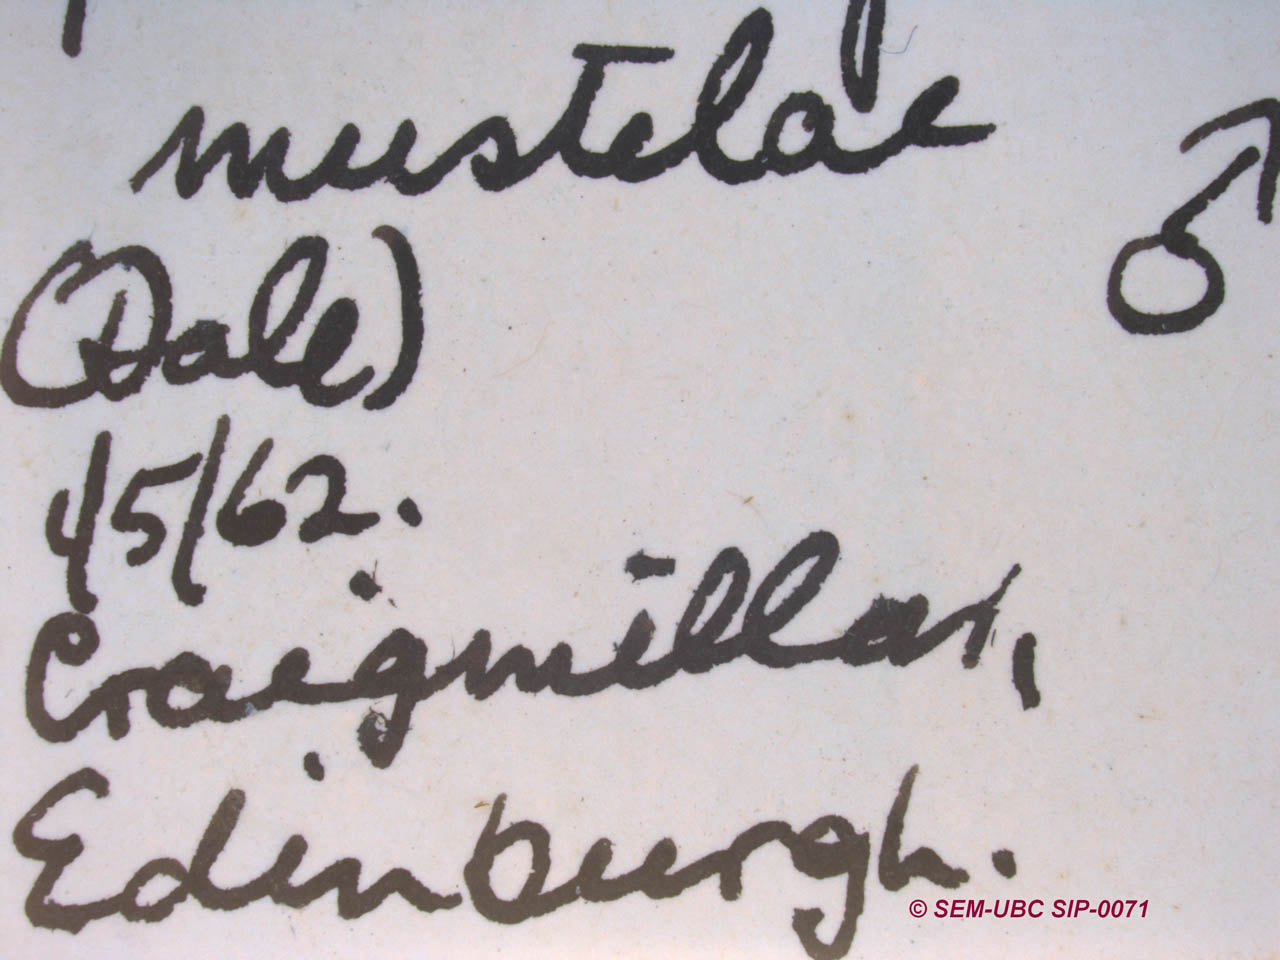 mustelae ♂
(Dale)
4/5/62.
Craigmillar,
Edinburgh.
© SEM-UBC SIP-0071